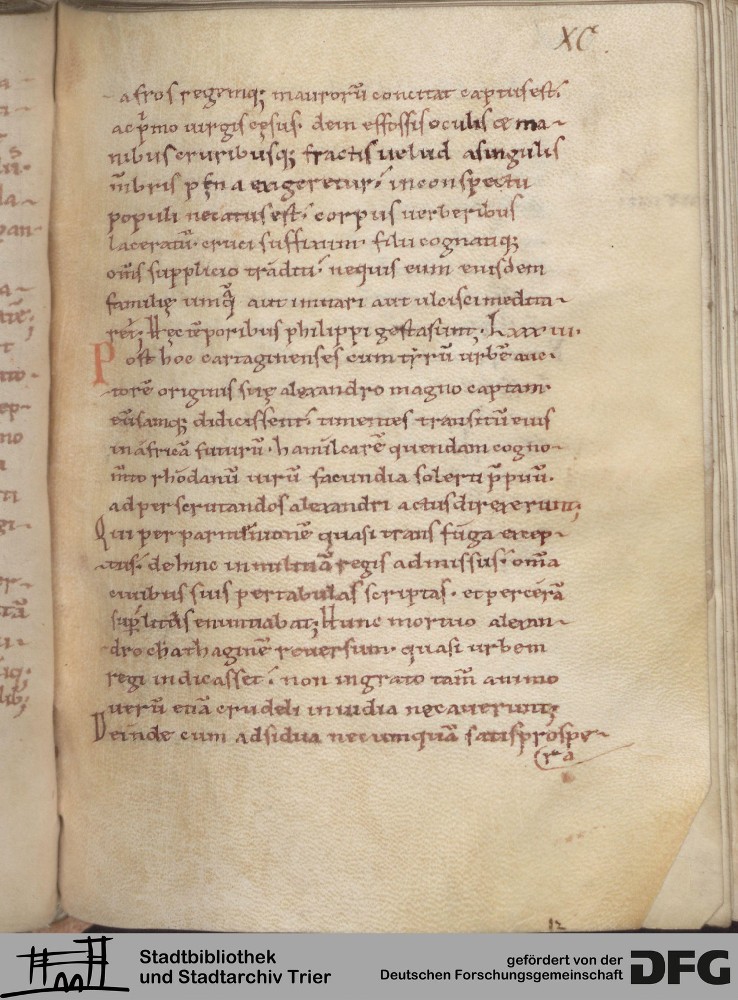 XC.
afros regemq; maurorū concitat captus est.
ac p̄mo uirgis cęsus. dein effossis oculis & ma-
nibus cruribusq; fractis uelud a singulis
m̄bris pęna exigeretur. in conspectu
populi necatus est. corpus uerberibus
laceratū. cruci suffixum. filii cognatiq;
om̄s supplicio traditi. nequis eum eiusdem
familię umquā aut imitari aut ulcisci medita-
ret; Hęc tēporibus philippi gesta sunt. Lxxxiii.
Post hoc cartaginenses cum tyrū urbē auc-
torē originis suę alexandro magno captam
euersamq; didicissent. timentes transitū eius
in africā futurū. hamilcarē quendam cogno-
m̄to rhodanū uirū facundia solerti p̄puū.
ad perscrutandos alexandri actus direxerunt;
Qui per parmenionē quasi transfuga excep-
tus. dehinc in militiā regis admissus. om̄a
ciuibus suis per tabulas scriptas. et per cerā
sup litas enuntiabat; Hunc mortuo alexan-
dro chathaginē reuersum. quasi urbem
regi indicasset. non ingrato tam̄ animo
uerū etiā crudeli inuidia necauerunt;
Deinde cum adsidua nec umquā satis prospe-
ra
12
Stadtbibliothek
und Stadtarchiv Trier
gefördert von der
Deutschen Forschungsgemeinschaft
DFG